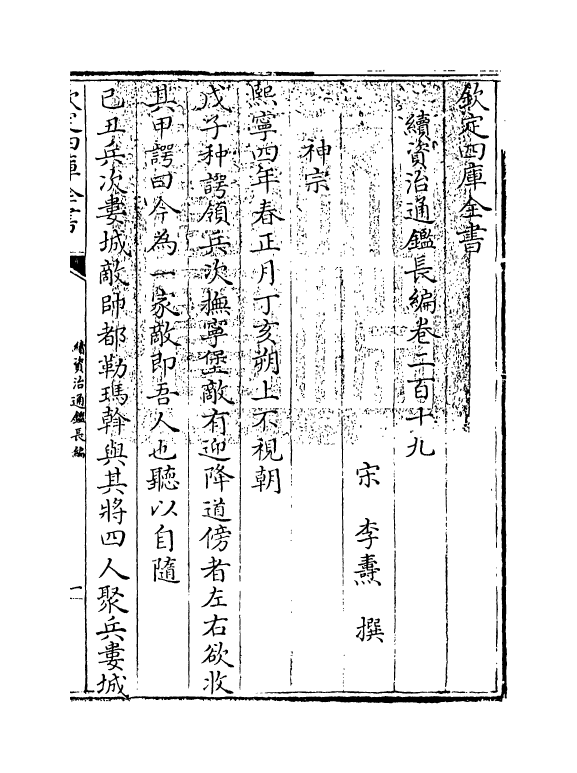 欽定四庫全書
續資治通鑑長編卷二百十九
宋 李燾 撰
神宗
熙寧四年春正月丁亥朔上不視朝
戊子种諤領兵次撫寧堡敵有迎降道傍者左右欲收
其甲諤曰今為一家敵即吾人也聽以自隨
己丑兵次婁城敵帥都勒瑪斡與其將四人聚兵婁城
欽定四庫全書
續資治通鑑長編
一